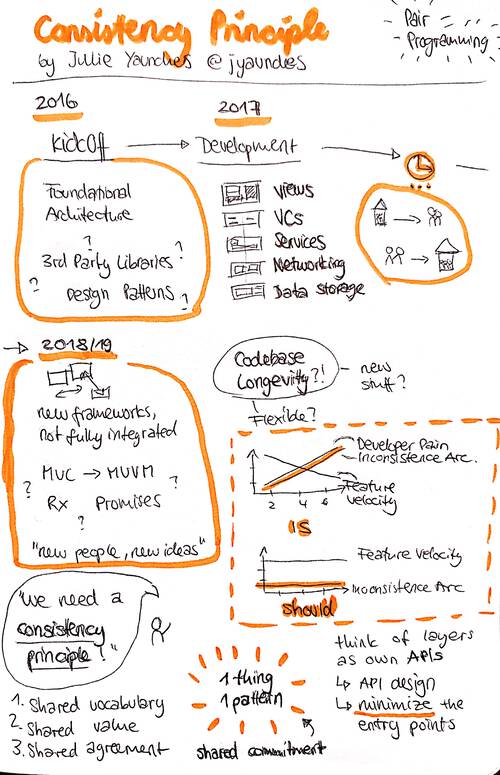 Consistency Principle
by Julie Yaundies @jyaundes
Pair
Programming
2016
2017
Kickoff
Development
Foundational
Architecture
?
3rd Party Libraries ?
? Design Patterns ?
Views
VCs
Services
Networking
Data storage
2018/19
new frameworks,
not fully integrated
MVC → MVVM
? ?
Rx Promises
?
"new people, new ideas"
Codebase
Longevity?!
new
stuff?
Flexible?
Developer Pain
Inconsistence Arc.
Feature
velocity
2 4 6
IS
Feature Velocity
Inconsistence Arc
should
"We need a
consistency
principle!"
1. Shared vocabulary
2. Shared value
3. Shared agreement
1 thing
1 pattern
shared commitment
think of layers
as own APIs
↳ API design
↳ minimize the
entry points